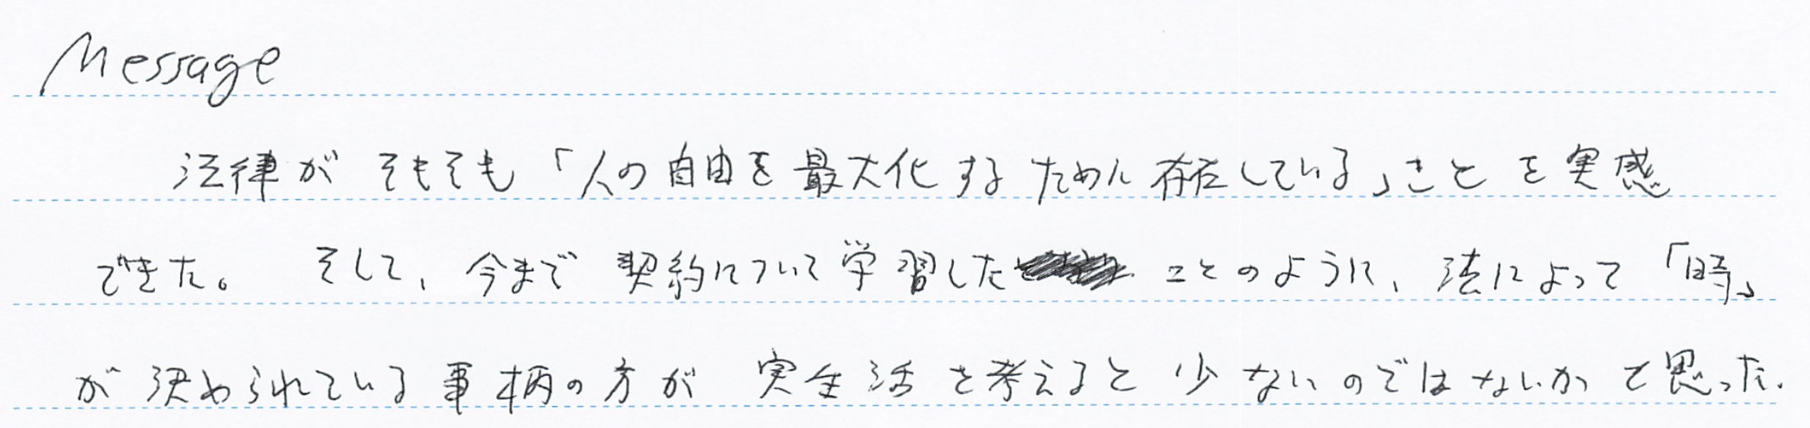 Message
法律がそもそも「人の自由を最大化するために存在している」ことを実感
できた。そして、今まで契約について学習した ことのように、法によって「時」
が決められている事柄の方が実生活を考えると少ないのではないかと思った。